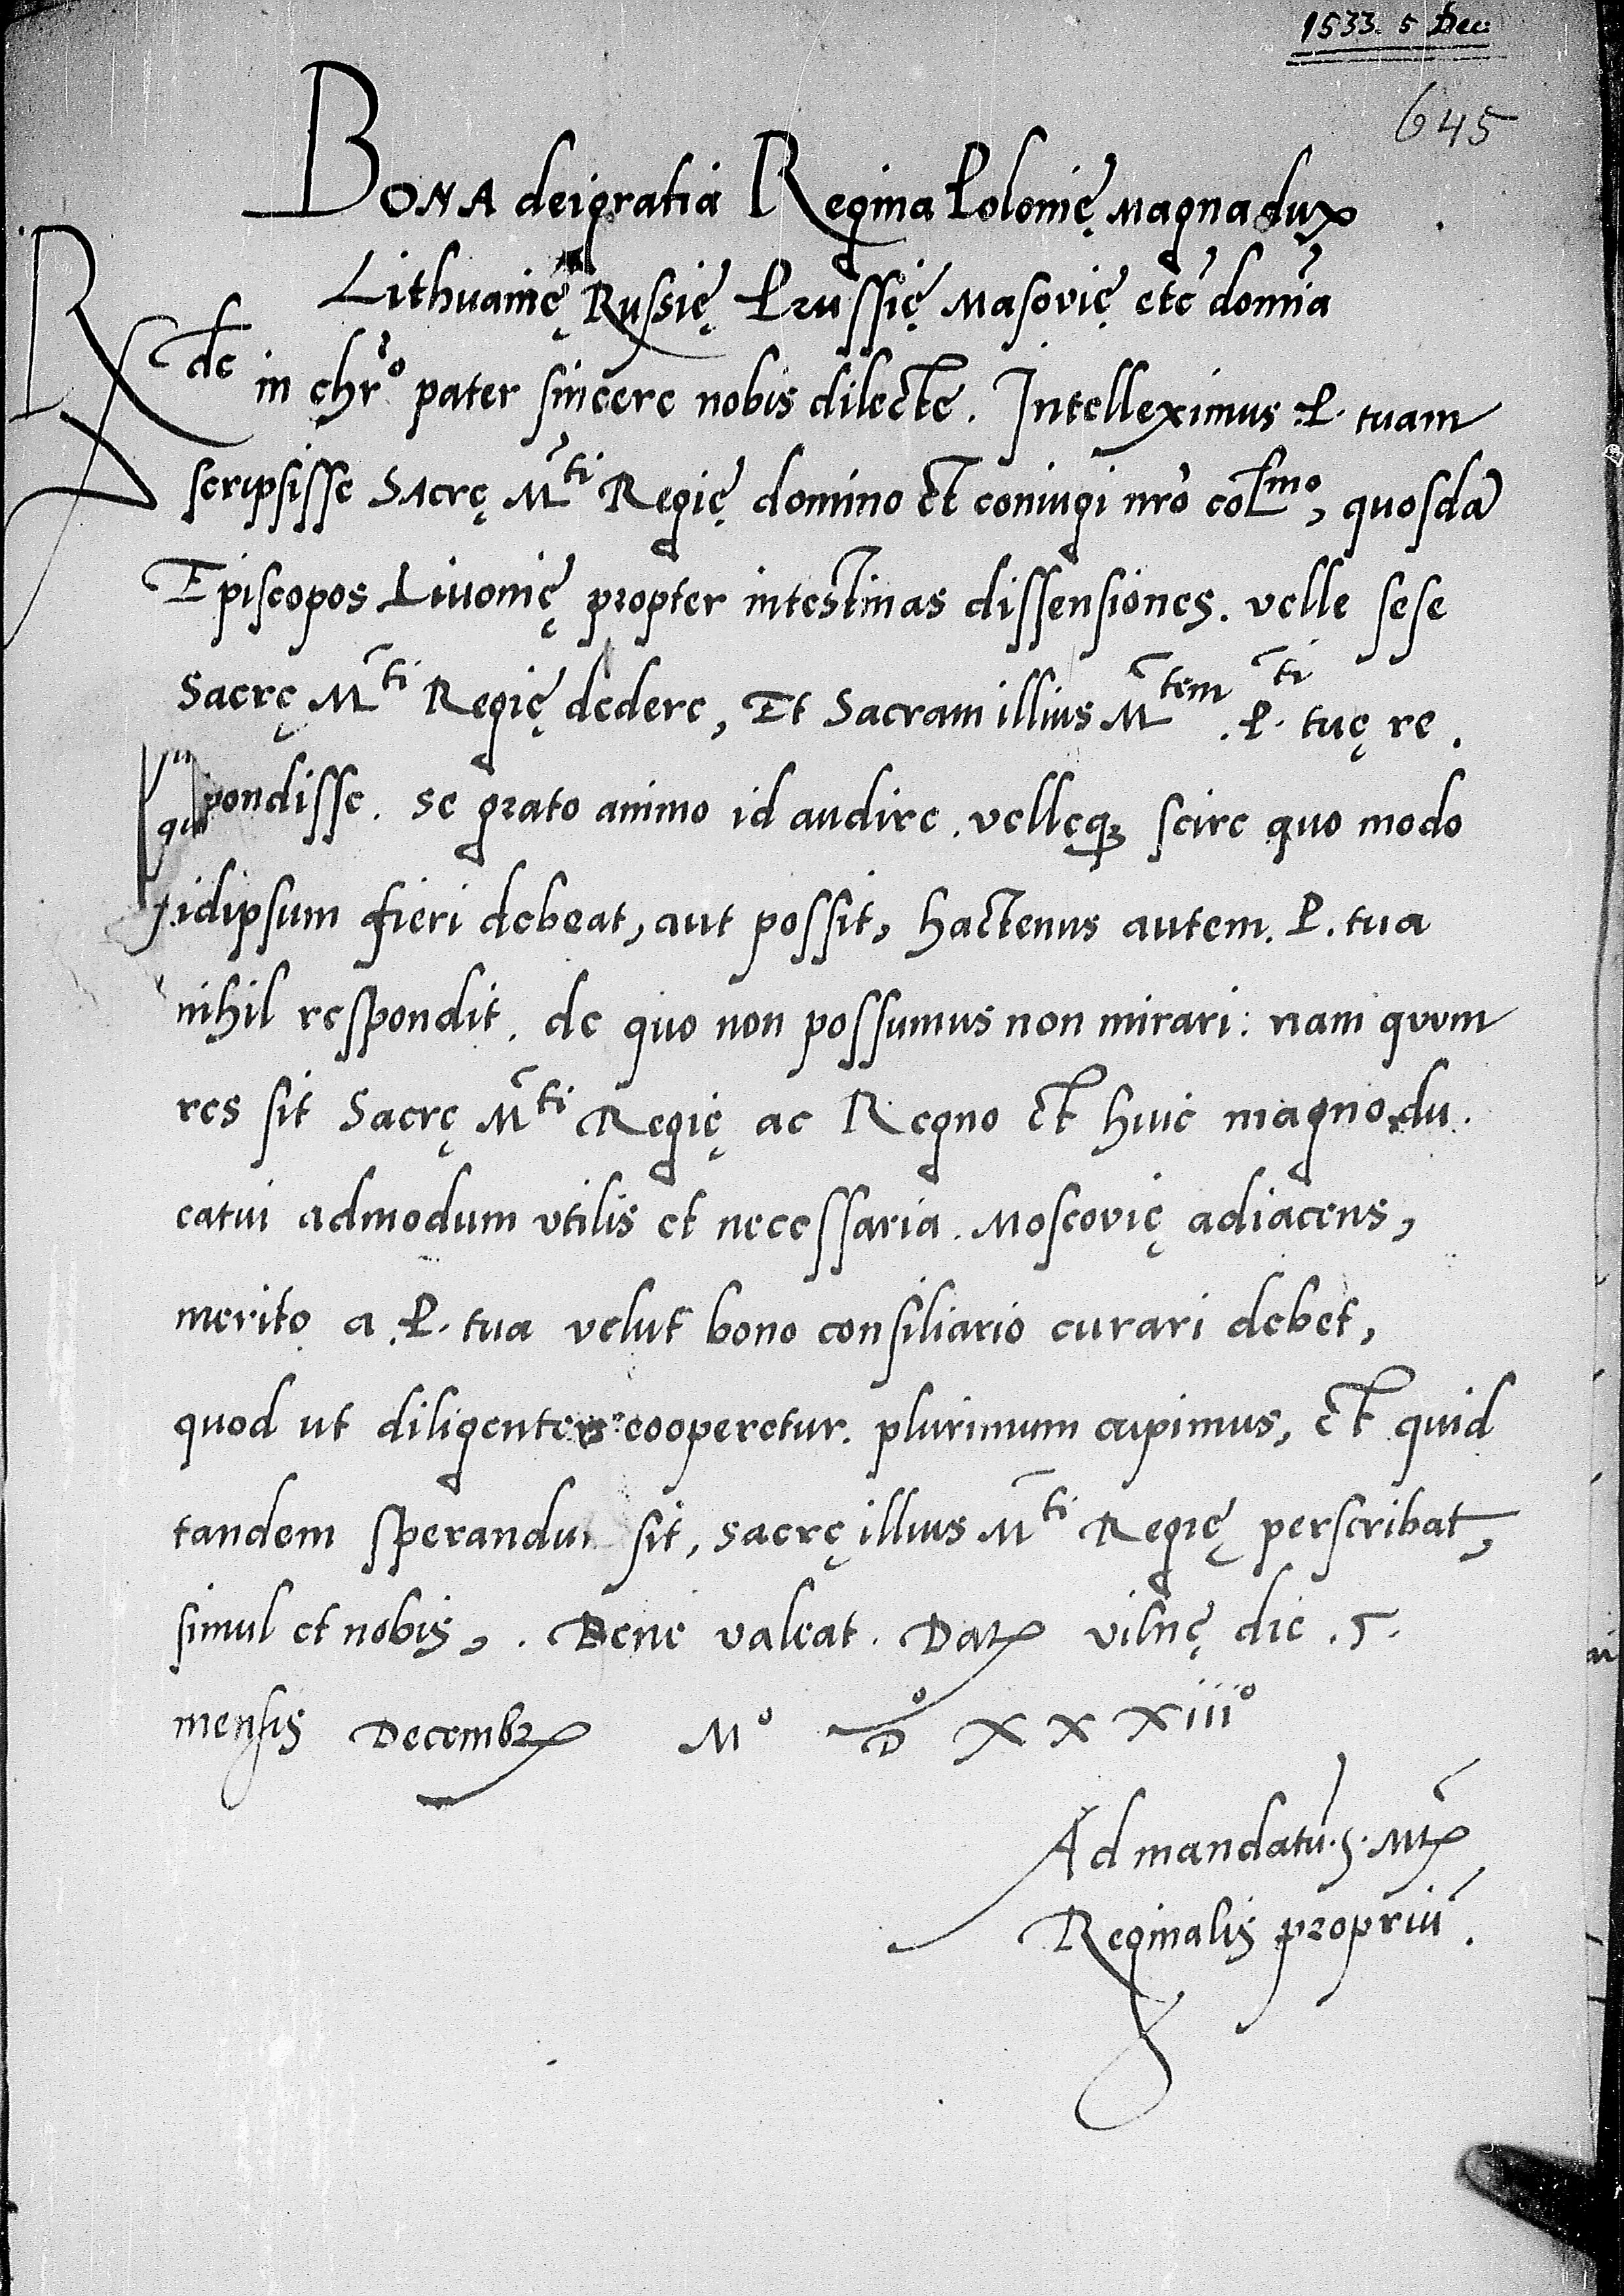 1533. 5 Dec.
645
BONA dei gratia Regina Polonię magna dux
Lithuanię Russię Prussię Masovię etc̃ domĩa
Rde in chr̃o pater sincere nobis dilecte. Intelleximus .P. tuam
scripsisse Sacrę Mti Regię domino et coniugi nr̃o colmo, quosdã
Episcopos Livonię propter intestinas dissensiones. velle sese
Sacrę Mti Regię dedere, Et Sacram illius Mtem .P.ti tuę re.
pondisse. se grato animo id audire. velleq; scire quo modo
idipsum fieri debeat, aut possit, hactenus autem. P. tua
nihil respondit. de quo non possumus non mirari: nam quom
res sit Sacrę Mti Regię ac Regno et huic magno du.
catui admodum utilis et necessaria. Moscovię adiacens,
merito a .P. tua velut bono consiliario curari debet,
quod ut diligenter cooperetur. plurimum cupimus, et quid
tandem sperandu sit, sacrę illius Mti Regię perscribat,
simul et nobis, . Bene valeat. Datꝭ vilnę die .5.
mensis Decembrꝭ Mo Do XXXiiio
Ad mandatũ .S. Mtꝭ
Reginalis propriũ.